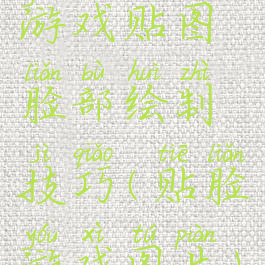 游戏贴图
liǎn bù huì zhì
脸部绘制
jì qiǎo tiē liǎn
技巧(贴脸
yóu xì tú piàn
游戏图片)